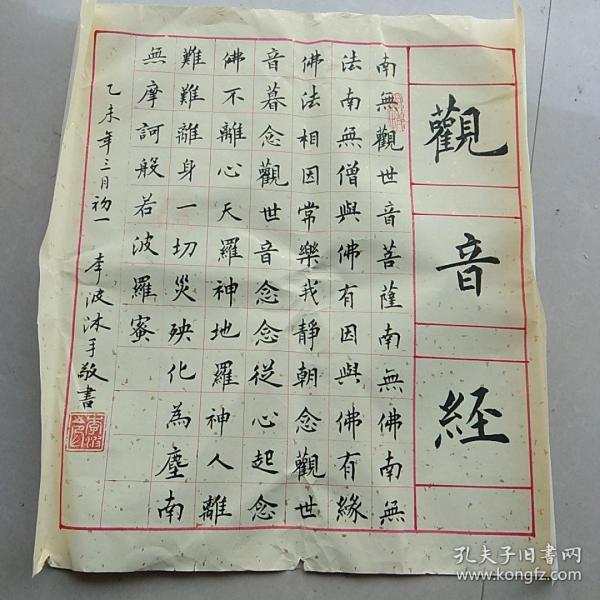 觀音經
南無觀世音菩薩南無佛南無
法南無僧與佛有因與佛有緣
佛法相因常樂我靜朝念觀世
音暮念觀世音念念從心起念
佛不離心天羅神地羅神人離
難難離身一切災殃化為塵南
無摩訶般若波羅蜜
乙未年三月初一 李波沐手敬書
孔夫子旧书网
www.kongfz.com